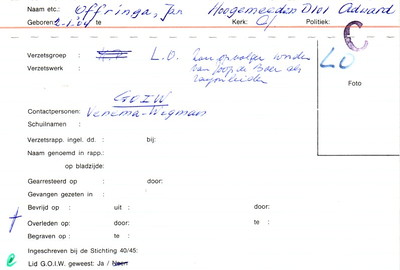 Naam etc.: Offringa, Jan Hoogemeeden D101 Aduard
Geboren: 2-1-21 te Kerk: Politiek:
C
Verzetsgroep : L.O. kan opvolger worden
Verzetswerk : van Joop de Boer als
rayonleider
LO
Foto
G.O.I.W
Contactpersonen: Venema-Wegman
Schuilnaam :
Verzetsrapp. ingel. dd. : bij:
Naam genoemd in rapp.:
op bladzijde:
Gearresteerd op : door:
Gevangen gezeten in :
Bevrijd op : uit : door:
Overleden op: door: te :
Begraven op : te :
Ingeschreven bij de Stichting 40/45:
e Lid G.O.I.W. geweest: Ja / Neen